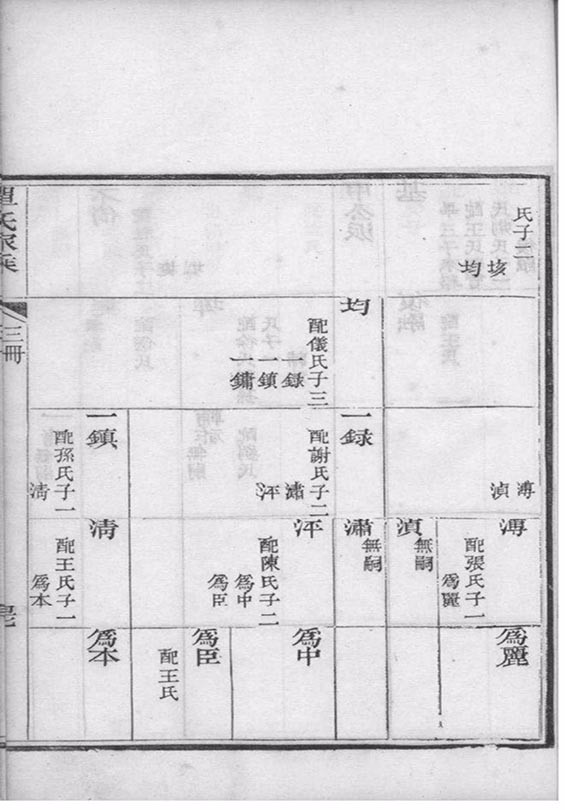 氏子二
垓
均
均
配儀氏子三
一録
一鎮
一鏞
溥
湞
一録
配謝氏子二
潚
泙
一鎮
配孫氏子一
淸
溥
配張氏子一
爲麗
湞
無嗣
潚
無嗣
泙
配陳氏子二
爲中
爲臣
淸
配王氏子一
爲本
爲麗
爲中
爲臣
配王氏
爲本
氏家乘
三冊